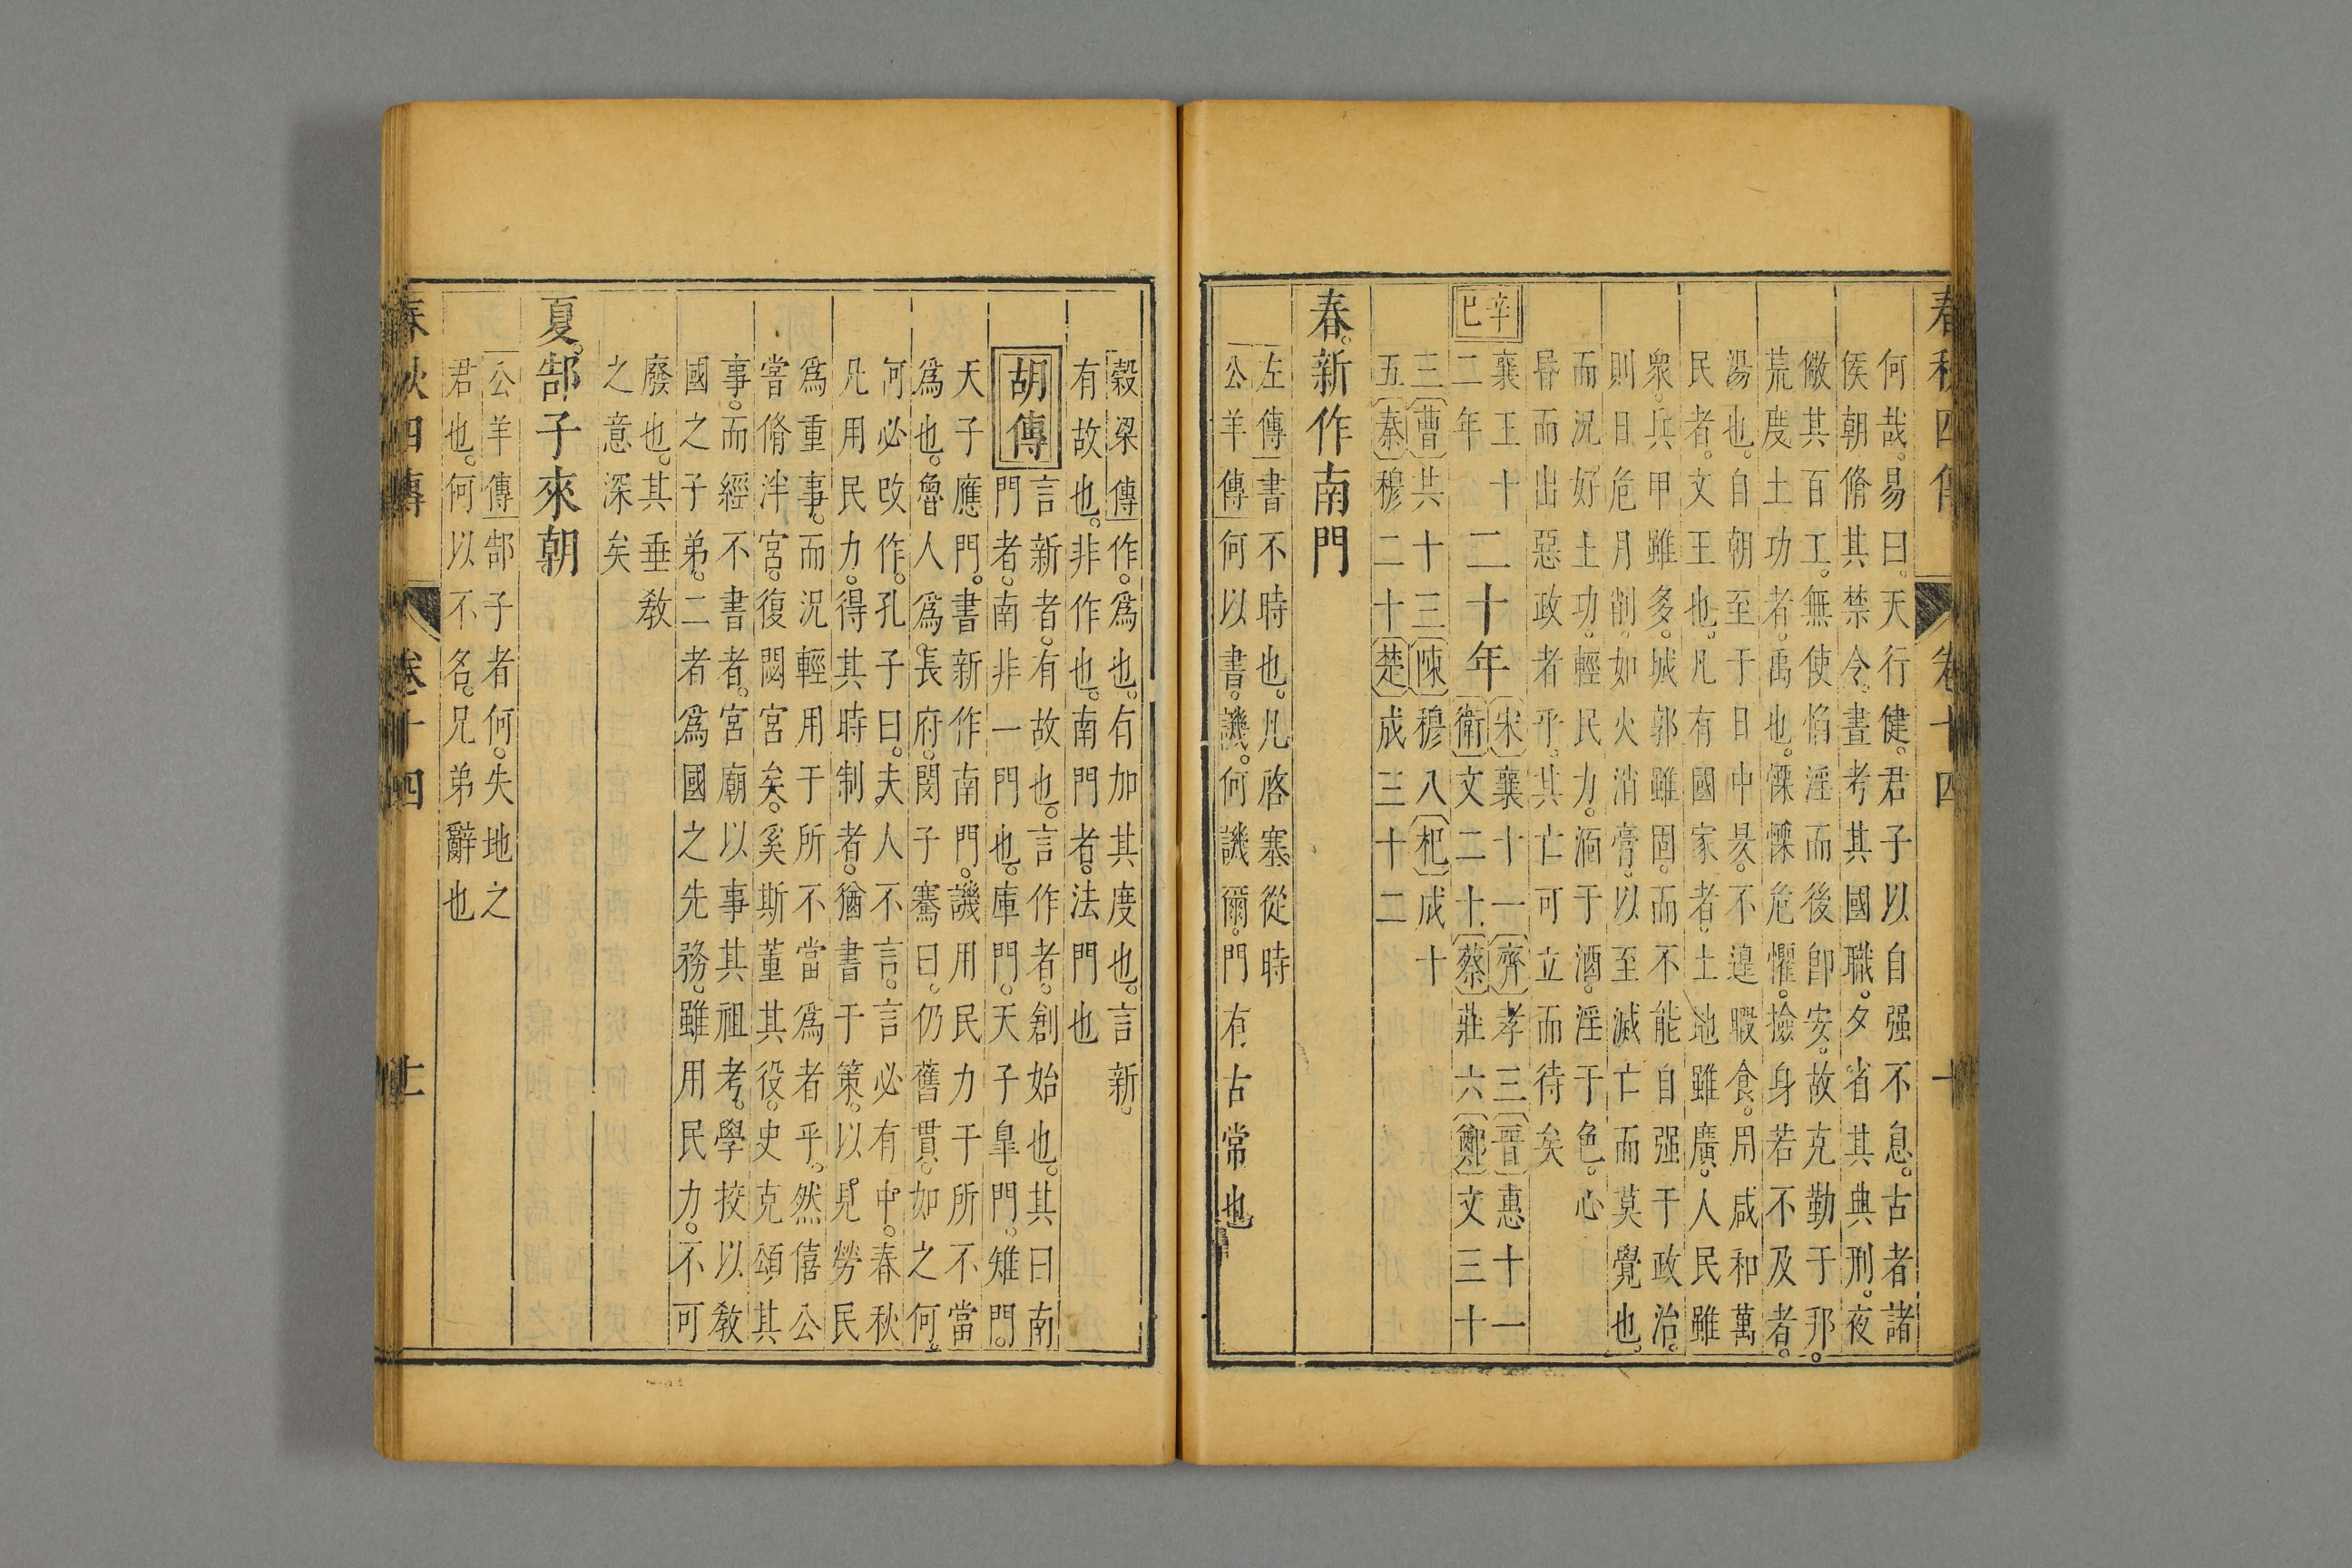 春秋四傳 卷十四 十
何哉。易曰。天行健。君子以自强不息。古者諸
侯朝脩其禁令。晝考其國職。夕省其典刑。夜
儆其百工。無使慆淫而後卽安。故克勤于邦。
荒度土功者。禹也。慄慄危懼。撿身若不及者。
湯也。自朝至于日中昃。不遑暇食。用咸和萬
民者。文王也。凡有國家者。土地雖廣。人民雖
衆。兵甲雖多。城郭雖固。而不能自强于政治。
則日危月削。如火消膏。以至滅亡而莫覺也。
而況好土功。輕民力。湎于酒。淫于色。心
昏而出惡政者乎。其亡可立而待矣
辛巳
襄王十二年
二十年
宋襄十一齊孝三晉惠十一
衛文二十蔡莊六鄭文三十
三曹共十三陳穆八杞成十
五秦穆二十楚成三十二
春。新作南門
左傳書不時也。凡啓塞從時
公羊傳何以書。譏。何譏爾。門有古常也
穀梁傳作。爲也。有加其度也。言新。
有故也。非作也。南門者。法門也
胡傳
言新者。有故也。言作者。創始也。其曰南
門者。南非一門也。庫門。天子皐門。雉門。
天子應門。書新作南門。譏用民力于所不當
爲也。魯人爲長府。閔子騫曰。仍舊貫。如之何。
何必攺作。孔子曰。夫人不言。言必有中。春秋
凡用民力。得其時制者。猶書于策。以見勞民
爲重事。而況輕用于所不當爲者乎。然僖公
嘗脩泮宮。復閟宮矣。奚斯董其役。史克頌其
事。而經不書者。宮廟以事其祖考。學挍以敎
國之子弟。二者爲國之先務。雖用民力。不可
廢也。其垂敎
之意深矣
夏。郜子來朝
公羊傳郜子者何。失地之
君也。何以不名。兄弟辭也
春秋四傳 卷十四